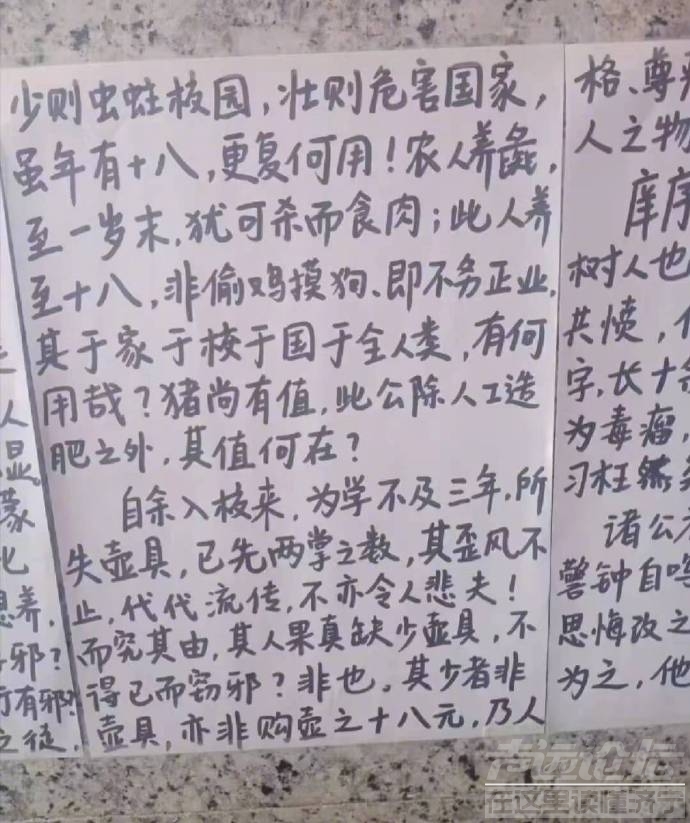 人
显
蒙
化
养，
邪？
有邪？
之徒，
少则虫蛀校园，壮则危害国家，
虽年有十八，更复何用！农人养彘，
至一岁末，犹可杀而食肉；此人养
至十八，非偷鸡摸狗、即不务正业，
其于家于校于国于全人类，有何
用哉？猪尚有值，此公除人工造
肥之外，其值何在？
自余入校来，为学不及三年，所
失壶具，已先两掌之数，其歪风不
止，代代流传，不亦令人悲夫！
而究其由，其人果真缺少壶具，不
得已而窃邪？非也，其少者非
壶具，亦非购壶之十八元，乃人
格、尊
人之物
庠序
树人也
共愤，
字，长十
为毒瘤，
习枉练
诸公
警钟自鸣
思悔改之
为之，他
论坛
在这里读懂济宁